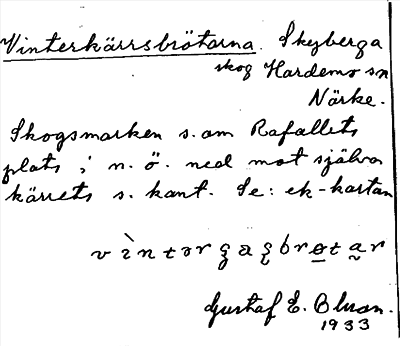 Vinterkärrsbrötarna. Skyberga
skog Hardemo sn
Närke.
Skogsmarken s. om Rafallets
plats i n. ö. ned mot själva
kärrets s. kant. Se: ek-kartan
Gustaf E. Bluan.
1933